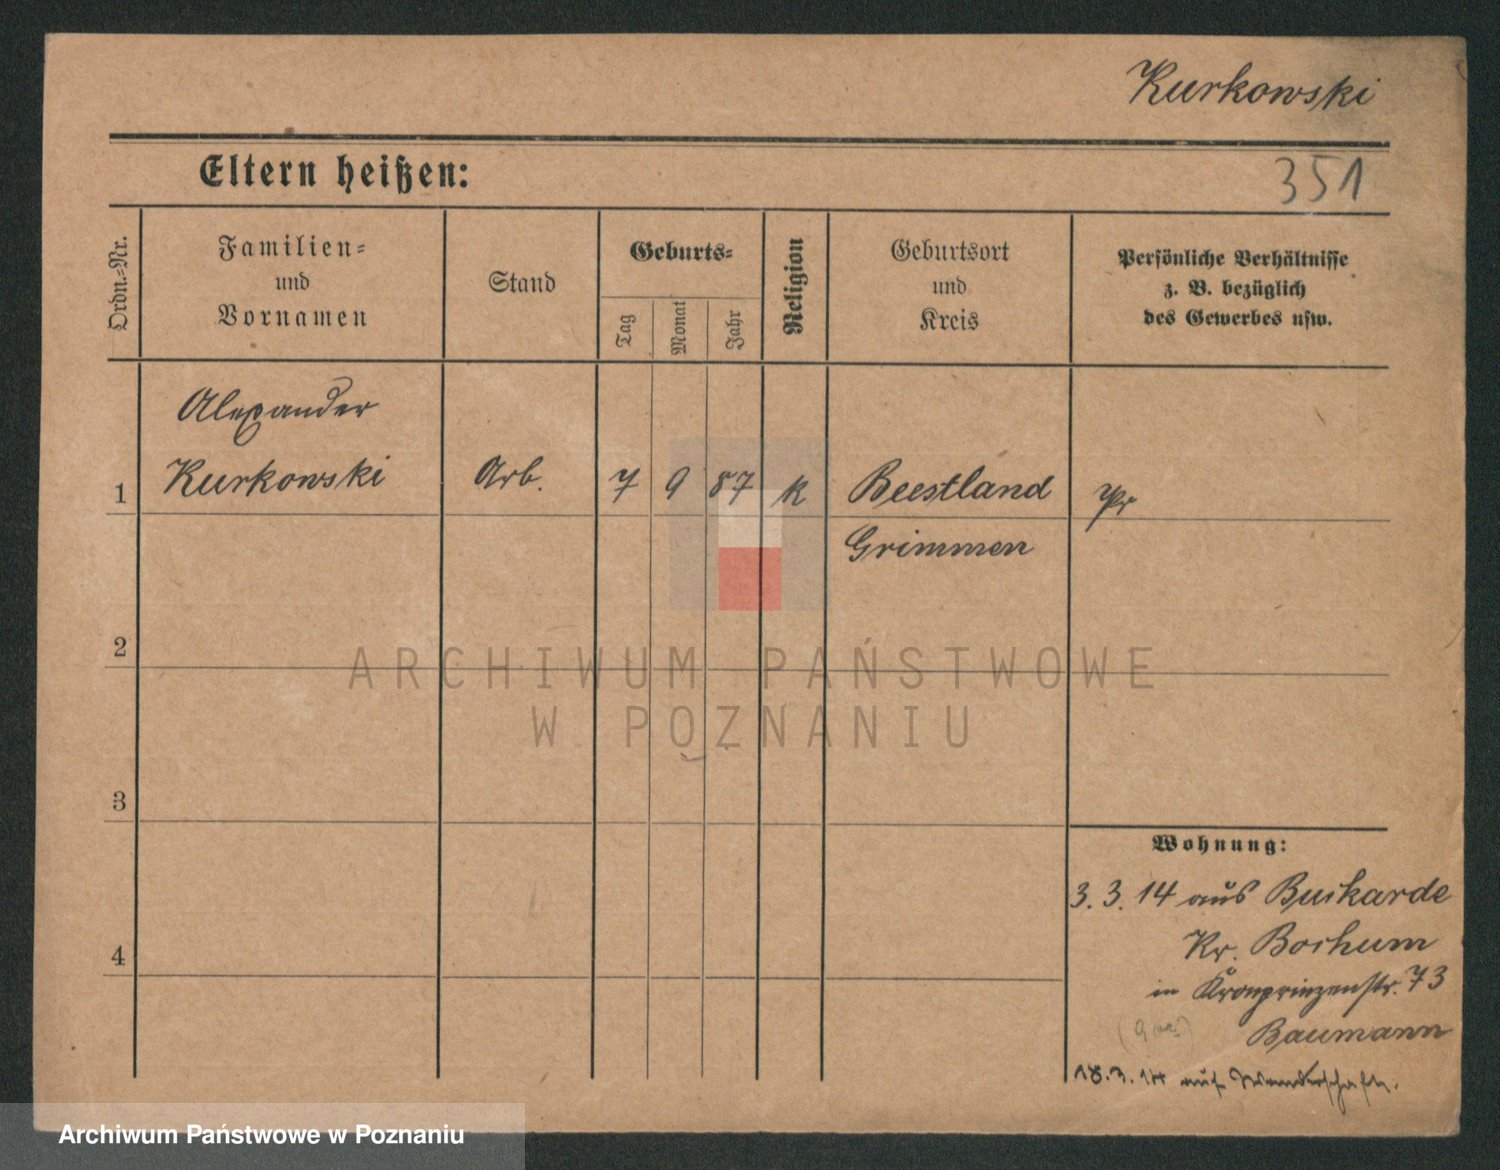 Kurkowski
Eltern heißen:
351
Ordn.-Nr.
Familien-
und
Vornamen
Stand
Geburts-
Tag
Monat
Jahr
Religion
Geburtsort
und
Kreis
Persönliche Verhältnisse
z. B. bezüglich
des Gewerbes usw.
Alexander
1 Kurkowski Arb. 7 9 87 k Beestland Pr
Grimmen
2
ARCHIWUM PAŃSTWOWE
W POZNANIU
3
Wohnung:
3.3.14 aus Buikarde
4
Kr. Bochum
in Kronprinzenstr. 73
Baumann
18.3.14 auf Wanderschaft.
Archiwum Państwowe w Poznaniu